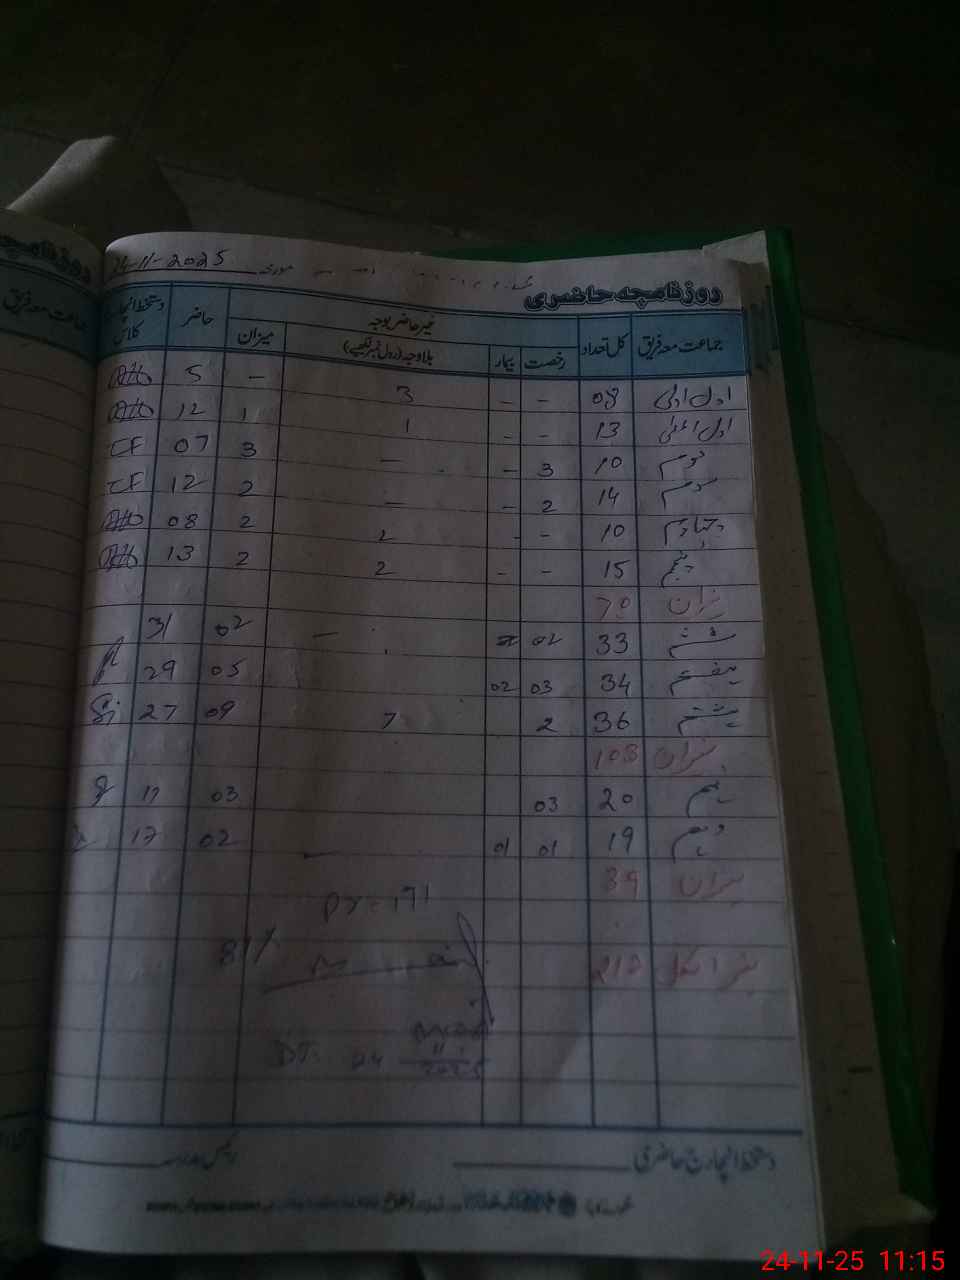 روزنامچہ حاضری مورخہ 24-11-2025
جماعت معہ فریق کل تعداد غیر حاضر بوجہ حاضر دستخط انچارج کلاس
رخصت بیمار بلاوجہ (رول نمبر لکھیے) میزان
اول ادنیٰ 08 - - 3 - 5
اول اعلیٰ 13 - - 1 1 12
دوم 10 3 - - 3 07 CF
سوم 14 2 - - 2 12 CF
چہارم 10 - - 2 2 08
پنجم 15 - - 2 2 13
میزان 70
ششم 33 02 - 02 31
ہفتم 34 03 02 05 29
ہشتم 36 2 7 09 27
میزان 103
نہم 20 03 03 17
دہم 19 01 01 - 02 17
میزان 39
Pr = 171
81%
میزان کل 212
DT: 24
11
2025
دستخط انچارج حاضری رئیس مدرسہ
24-11-25 11:15